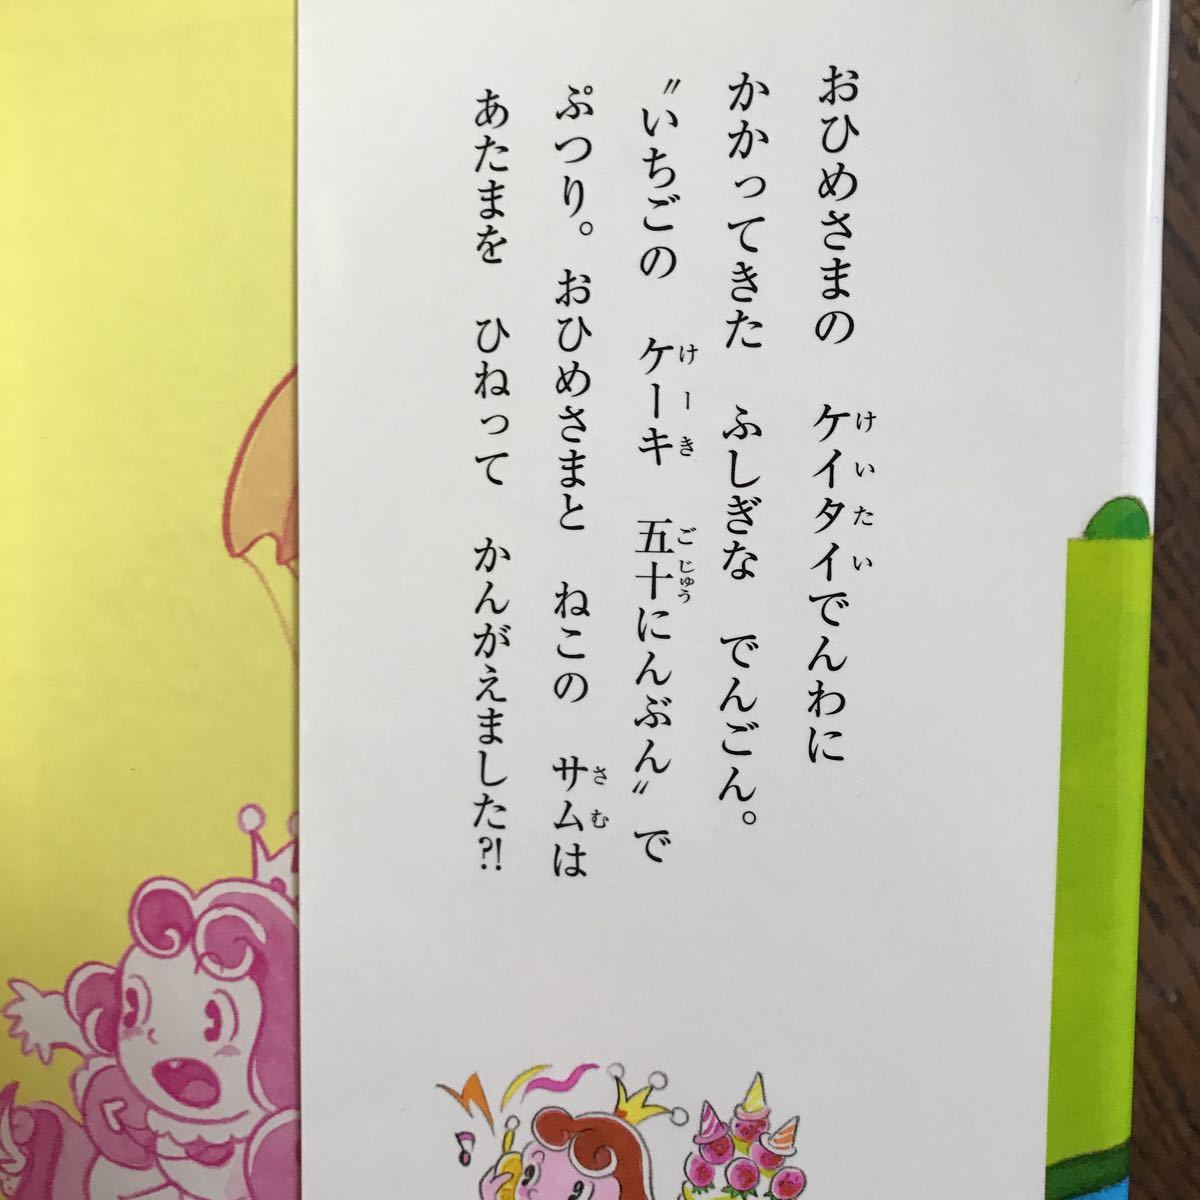 おひめさまの　ケイタイでんわに
かかってきた　ふしぎな　でんごん。
〝いちごの　ケーキ　五十にんぶん〟で
ぷつり。おひめさまと　ねこの　サムは
あたまを　ひねって　かんがえました⁈
けいたい
けーき
ごじゅう
さむ